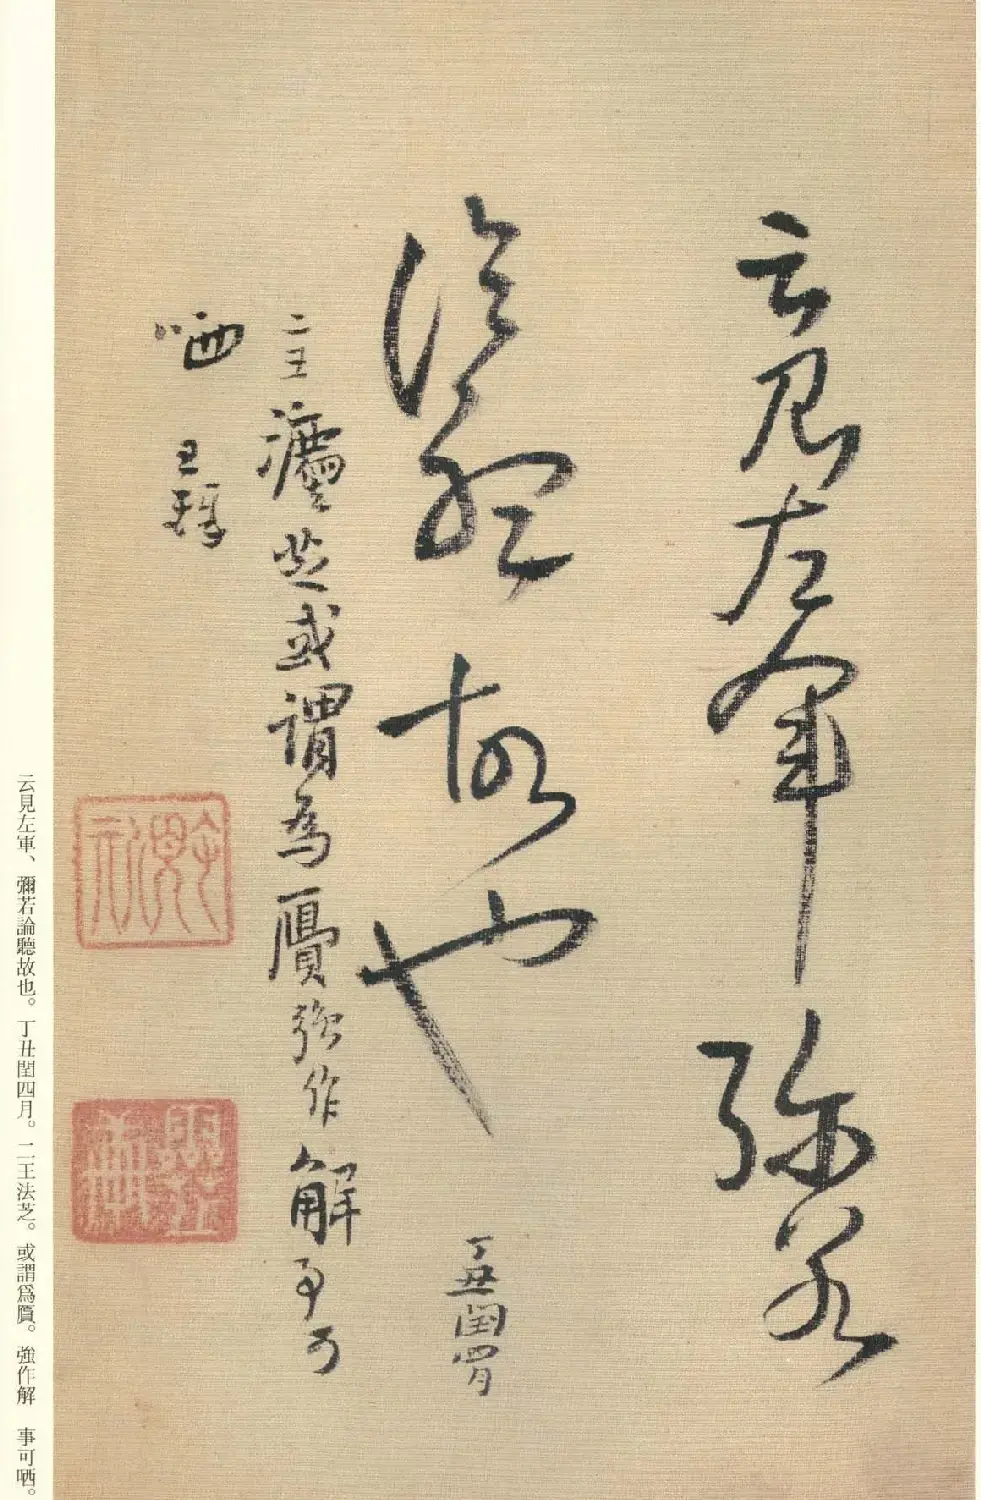 云見左軍彌若
論聽故也
丁丑閏四月
二王灋芝或謂為贗強作解事可
哂
云見左軍、彌若論聽故也。丁丑閏四月。二王法芝。或謂爲贗。強作解　事可哂。